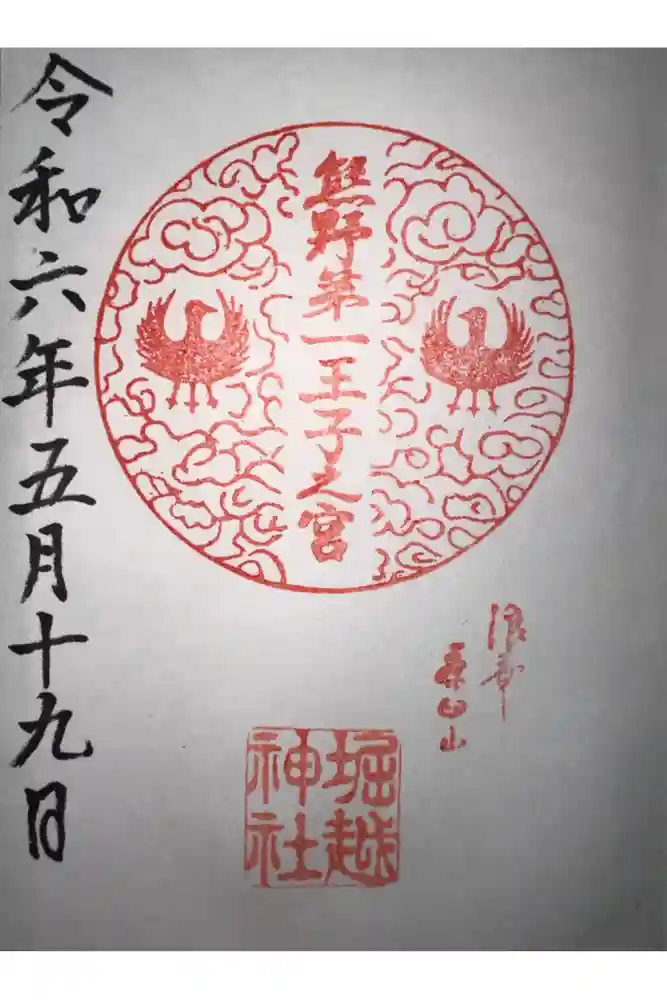 熊野第一王子之宮
浪華
茶臼山
堀越
神社
令和六年五月十九日